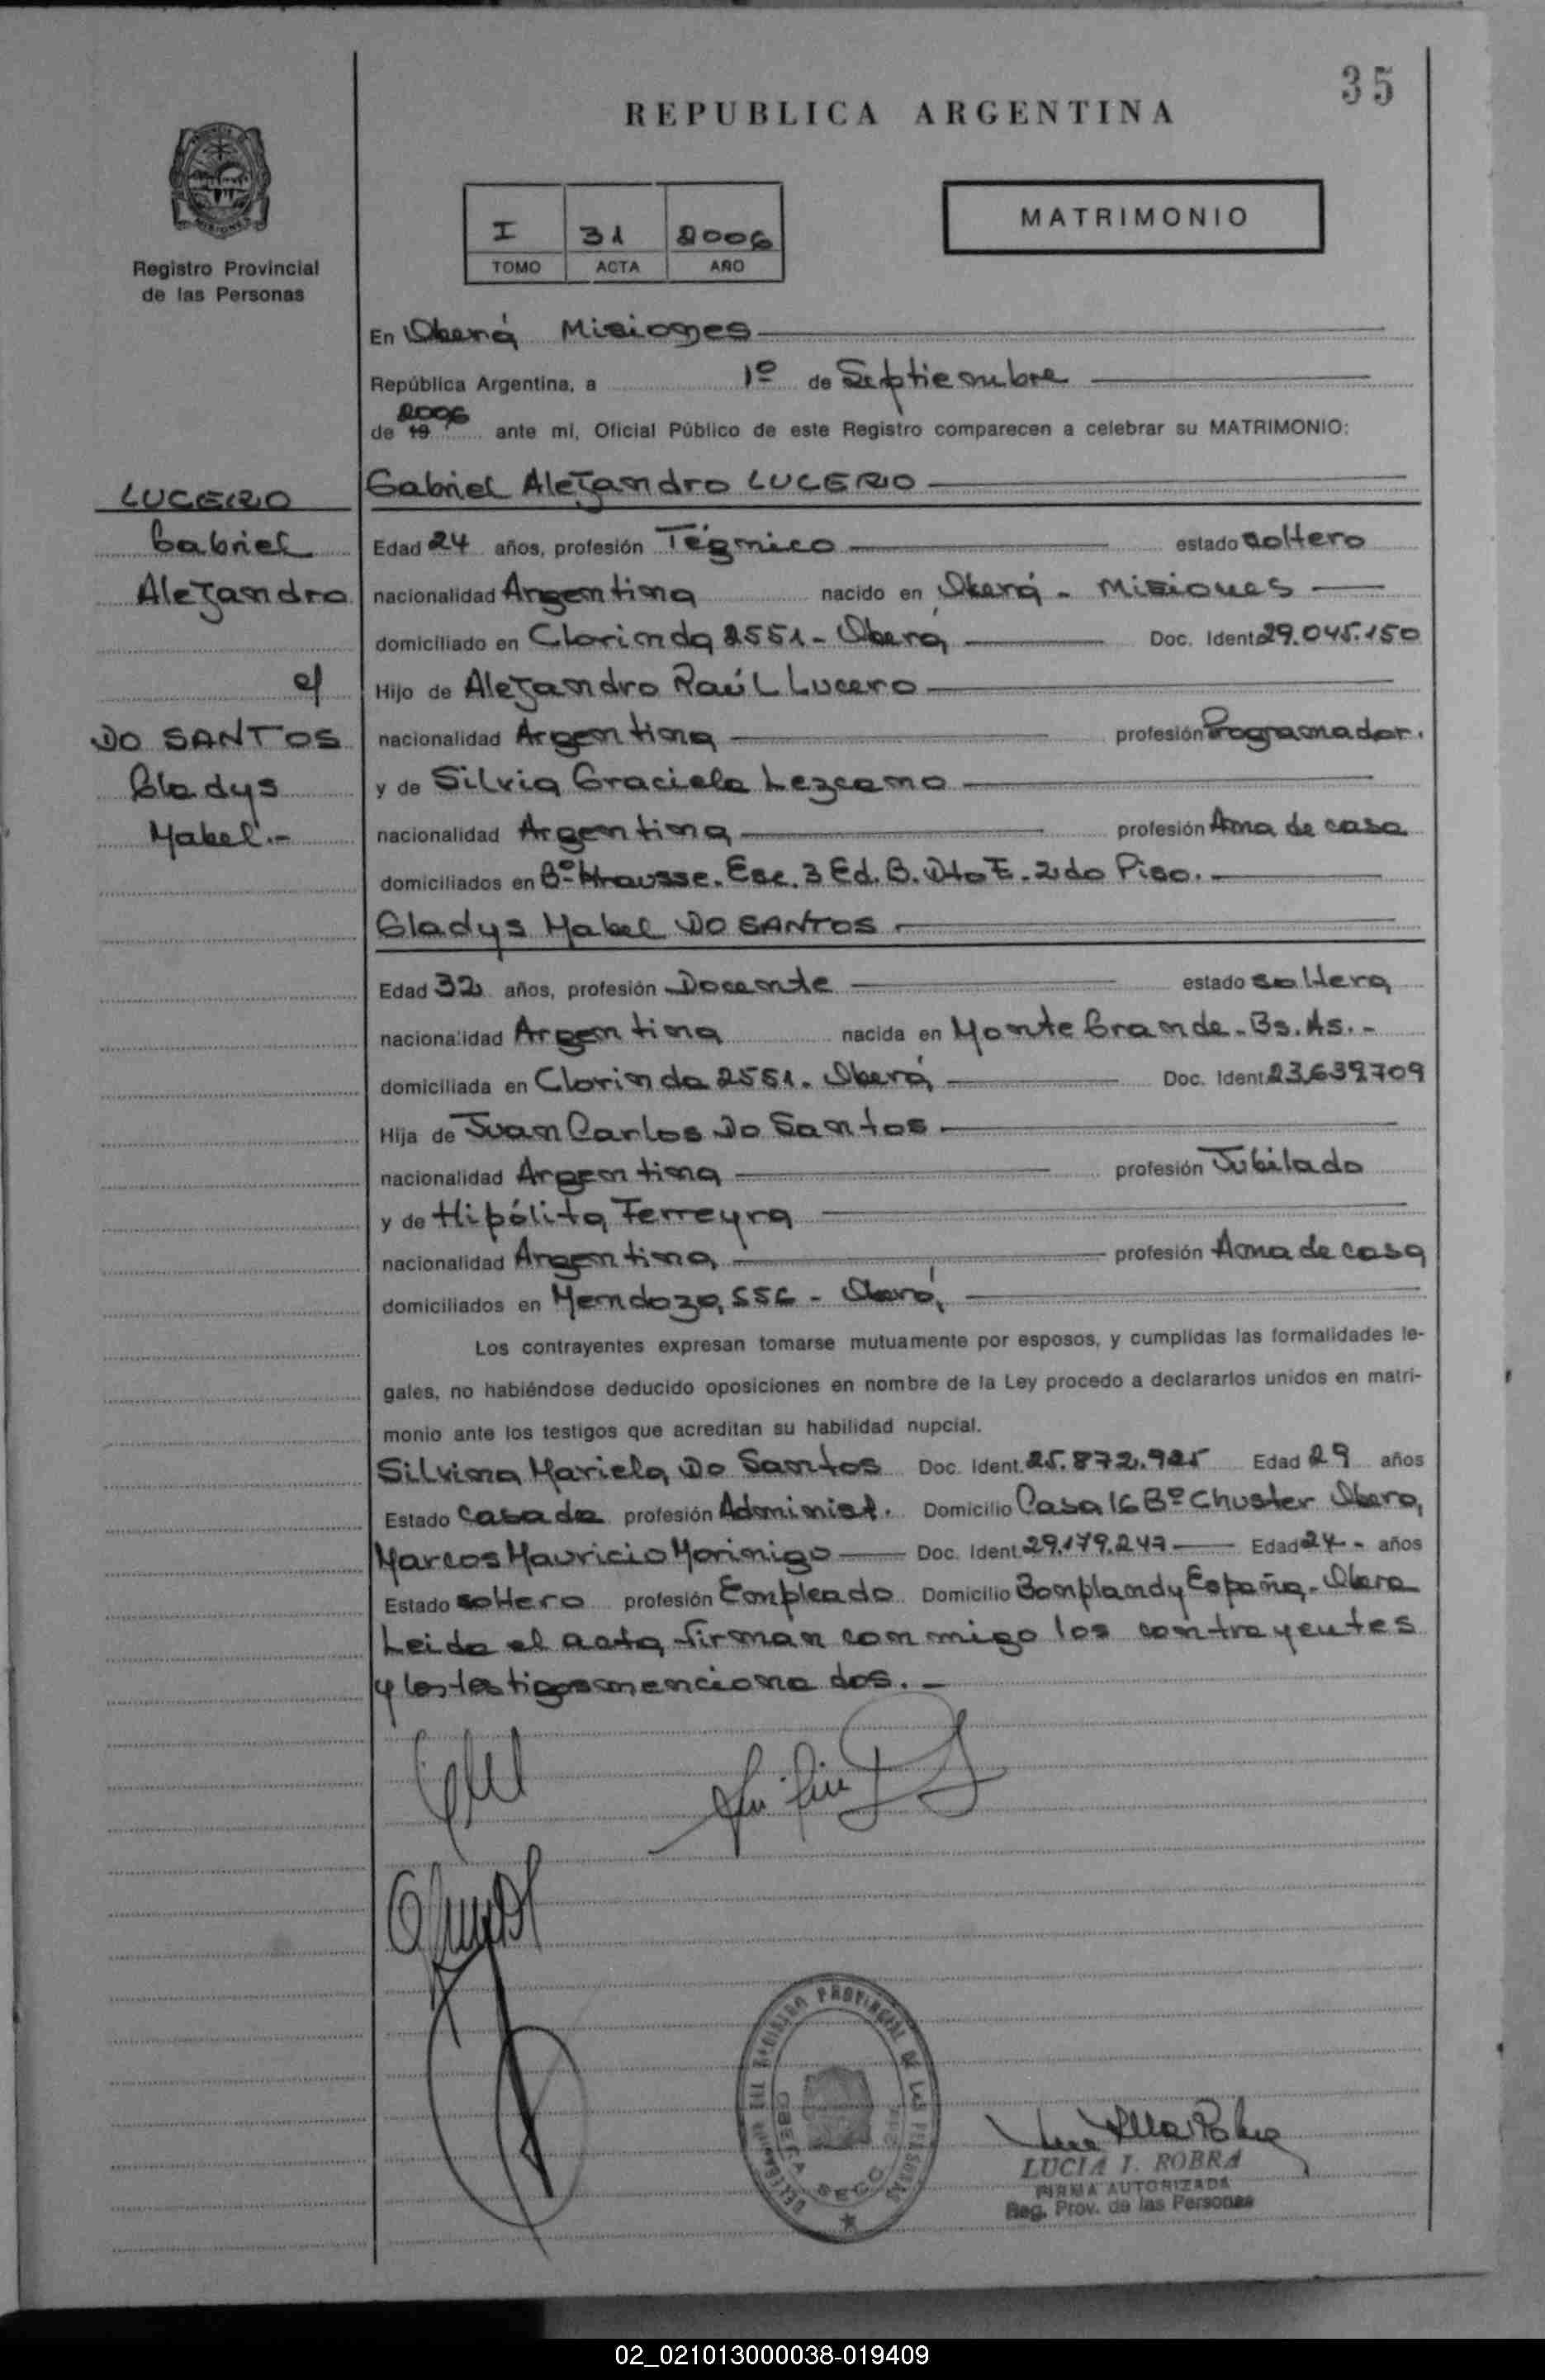 35
REPUBLICA ARGENTINA
MISIONES
Registro Provincial
de las Personas
I 31 2006
TOMO ACTA AÑO
MATRIMONIO
En Oberá Misiones
República Argentina, a 1º de Septiembre
2006
de 19 ante mi, Oficial Público de este Registro comparecen a celebrar su MATRIMONIO:
LUCERO
Gabriel
Alejandro
c/
DO SANTOS
Gladys
Mabel.-
Gabriel Alejandro LUCERO
Edad 24 años, profesión Técnico estado soltero
nacionalidad Argentina nacido en Oberá - Misiones
domiciliado en Clorinda 2551 - Oberá Doc. Ident. 29.045.150
Hijo de Alejandro Raúl Lucero
nacionalidad Argentina profesión Programador.
y de Silvia Graciela Lezcano
nacionalidad Argentina profesión Ama de casa
domiciliados en Bº Krausse. Esc. 3 Ed. B. Dto E. 2do Piso.
Gladys Mabel DO SANTOS
Edad 32 años, profesión Docente estado soltera
nacionalidad Argentina nacida en Monte Grande - Bs. As. -
domiciliada en Clorinda 2551. Oberá Doc. Ident. 23.639.709
Hija de Juan Carlos Do Santos
nacionalidad Argentina profesión Jubilado
y de Hipólita Ferreyra
nacionalidad Argentina profesión Ama de casa
domiciliados en Mendoza, 556 - Oberá,
Los contrayentes expresan tomarse mutuamente por esposos, y cumplidas las formalidades le-
gales, no habiéndose deducido oposiciones en nombre de la Ley procedo a declararlos unidos en matri-
monio ante los testigos que acreditan su habilidad nupcial.
Silvina Mariela Do Santos Doc. Ident. 25.872.925 Edad 29 años
Estado casada profesión Administ. Domicilio Casa 16 Bº Chuster Oberá,
Marcos Mauricio Morinigo Doc. Ident. 29.179.247 Edad 24 - años
Estado soltero profesión Empleado Domicilio Bonpland y España - Oberá
Leida el acta, firman conmigo los contrayentes
y los testigos mencionados. -
DELEGACION DEL REGISTRO PROVINCIAL DE LAS PERSONAS
OBERA SECC
LUCIA I. ROBRA
FIRMA AUTORIZADA
Reg. Prov. de las Personas
02_021013000038-019409